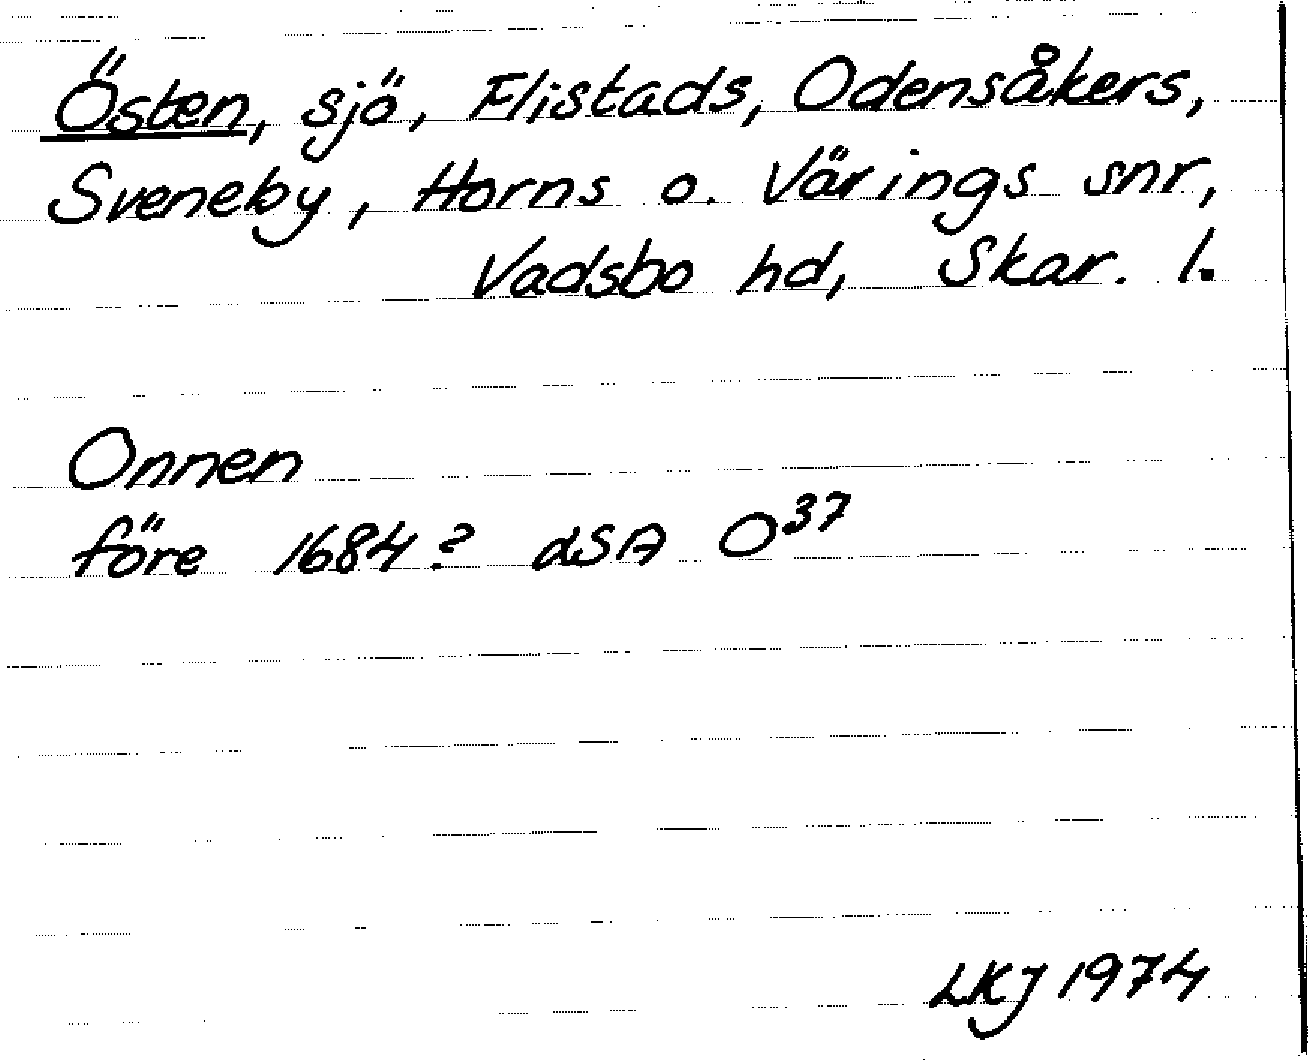 Östen, sjö, Flistads, Odensåkers,
Sveneby, Horns o. Värings snr,
Vadsbo hd, Skar. l.
Onnen
före 1684? dSA O37
LKJ 1974